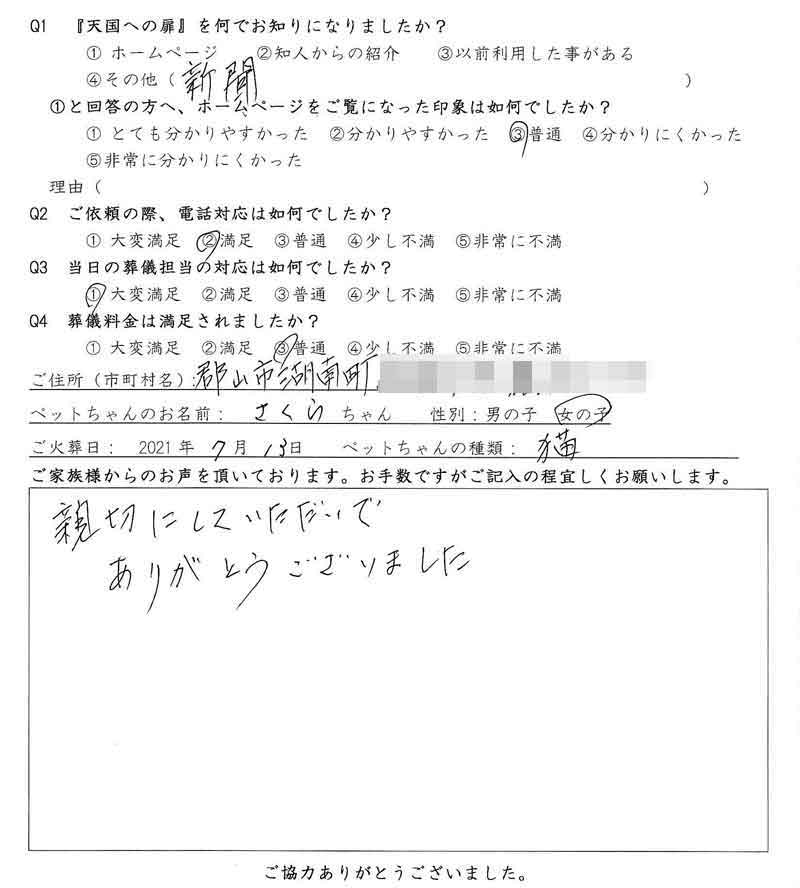 Q1 『天国への扉』を何でお知りになりましたか？
① ホームページ ②知人からの紹介 ③以前利用した事がある
④その他（新聞）
①と回答の方へ、ホームページをご覧になった印象は如何でしたか？
① とても分かりやすかった ②分かりやすかった ③普通 ④分かりにくかった
⑤非常に分かりにくかった
理由（ ）
Q2 ご依頼の際、電話対応は如何でしたか？
① 大変満足 ②満足 ③普通 ④少し不満 ⑤非常に不満
Q3 当日の葬儀担当の対応は如何でしたか？
① 大変満足 ②満足 ③普通 ④少し不満 ⑤非常に不満
Q4 葬儀料金は満足されましたか？
① 大変満足 ②満足 ③普通 ④少し不満 ⑤非常に不満
ご住所（市町村名）：郡山市湖南町
ペットちゃんのお名前： さくら ちゃん 性別：男の子 女の子
ご火葬日： 2021年 7月 13日 ペットちゃんの種類： 猫
ご家族様からのお声を頂いております。お手数ですがご記入の程宜しくお願いします。
親切にしていただいて
ありがとうございました
ご協力ありがとうございました。